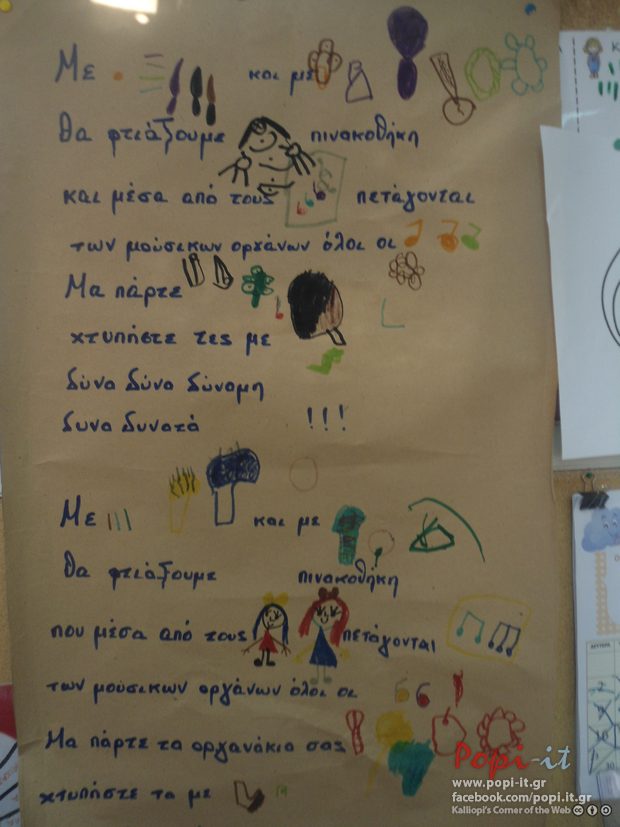 Με και με
θα φτιάξουμε πινακοθήκη
και μέσα από τους πετάγονται
των μούσικων οργάνων όλοι οι
Μα πάρτε
χτυπήστε τες με
δύνα δύνα δύναμη
δυνα δυνατά !!!
Με και με
θα φτιάξουμε πινακοθήκη
που μέσα από τους πετάγονται
των μούσικων οργάνων όλοι οι
Μα πάρτε τα οργανάκια σας
χτυπήστε τα με
Popi-it
www.popi-it.gr
facebook.com/popi.it.gr
Kalliopi's Corner of the Web